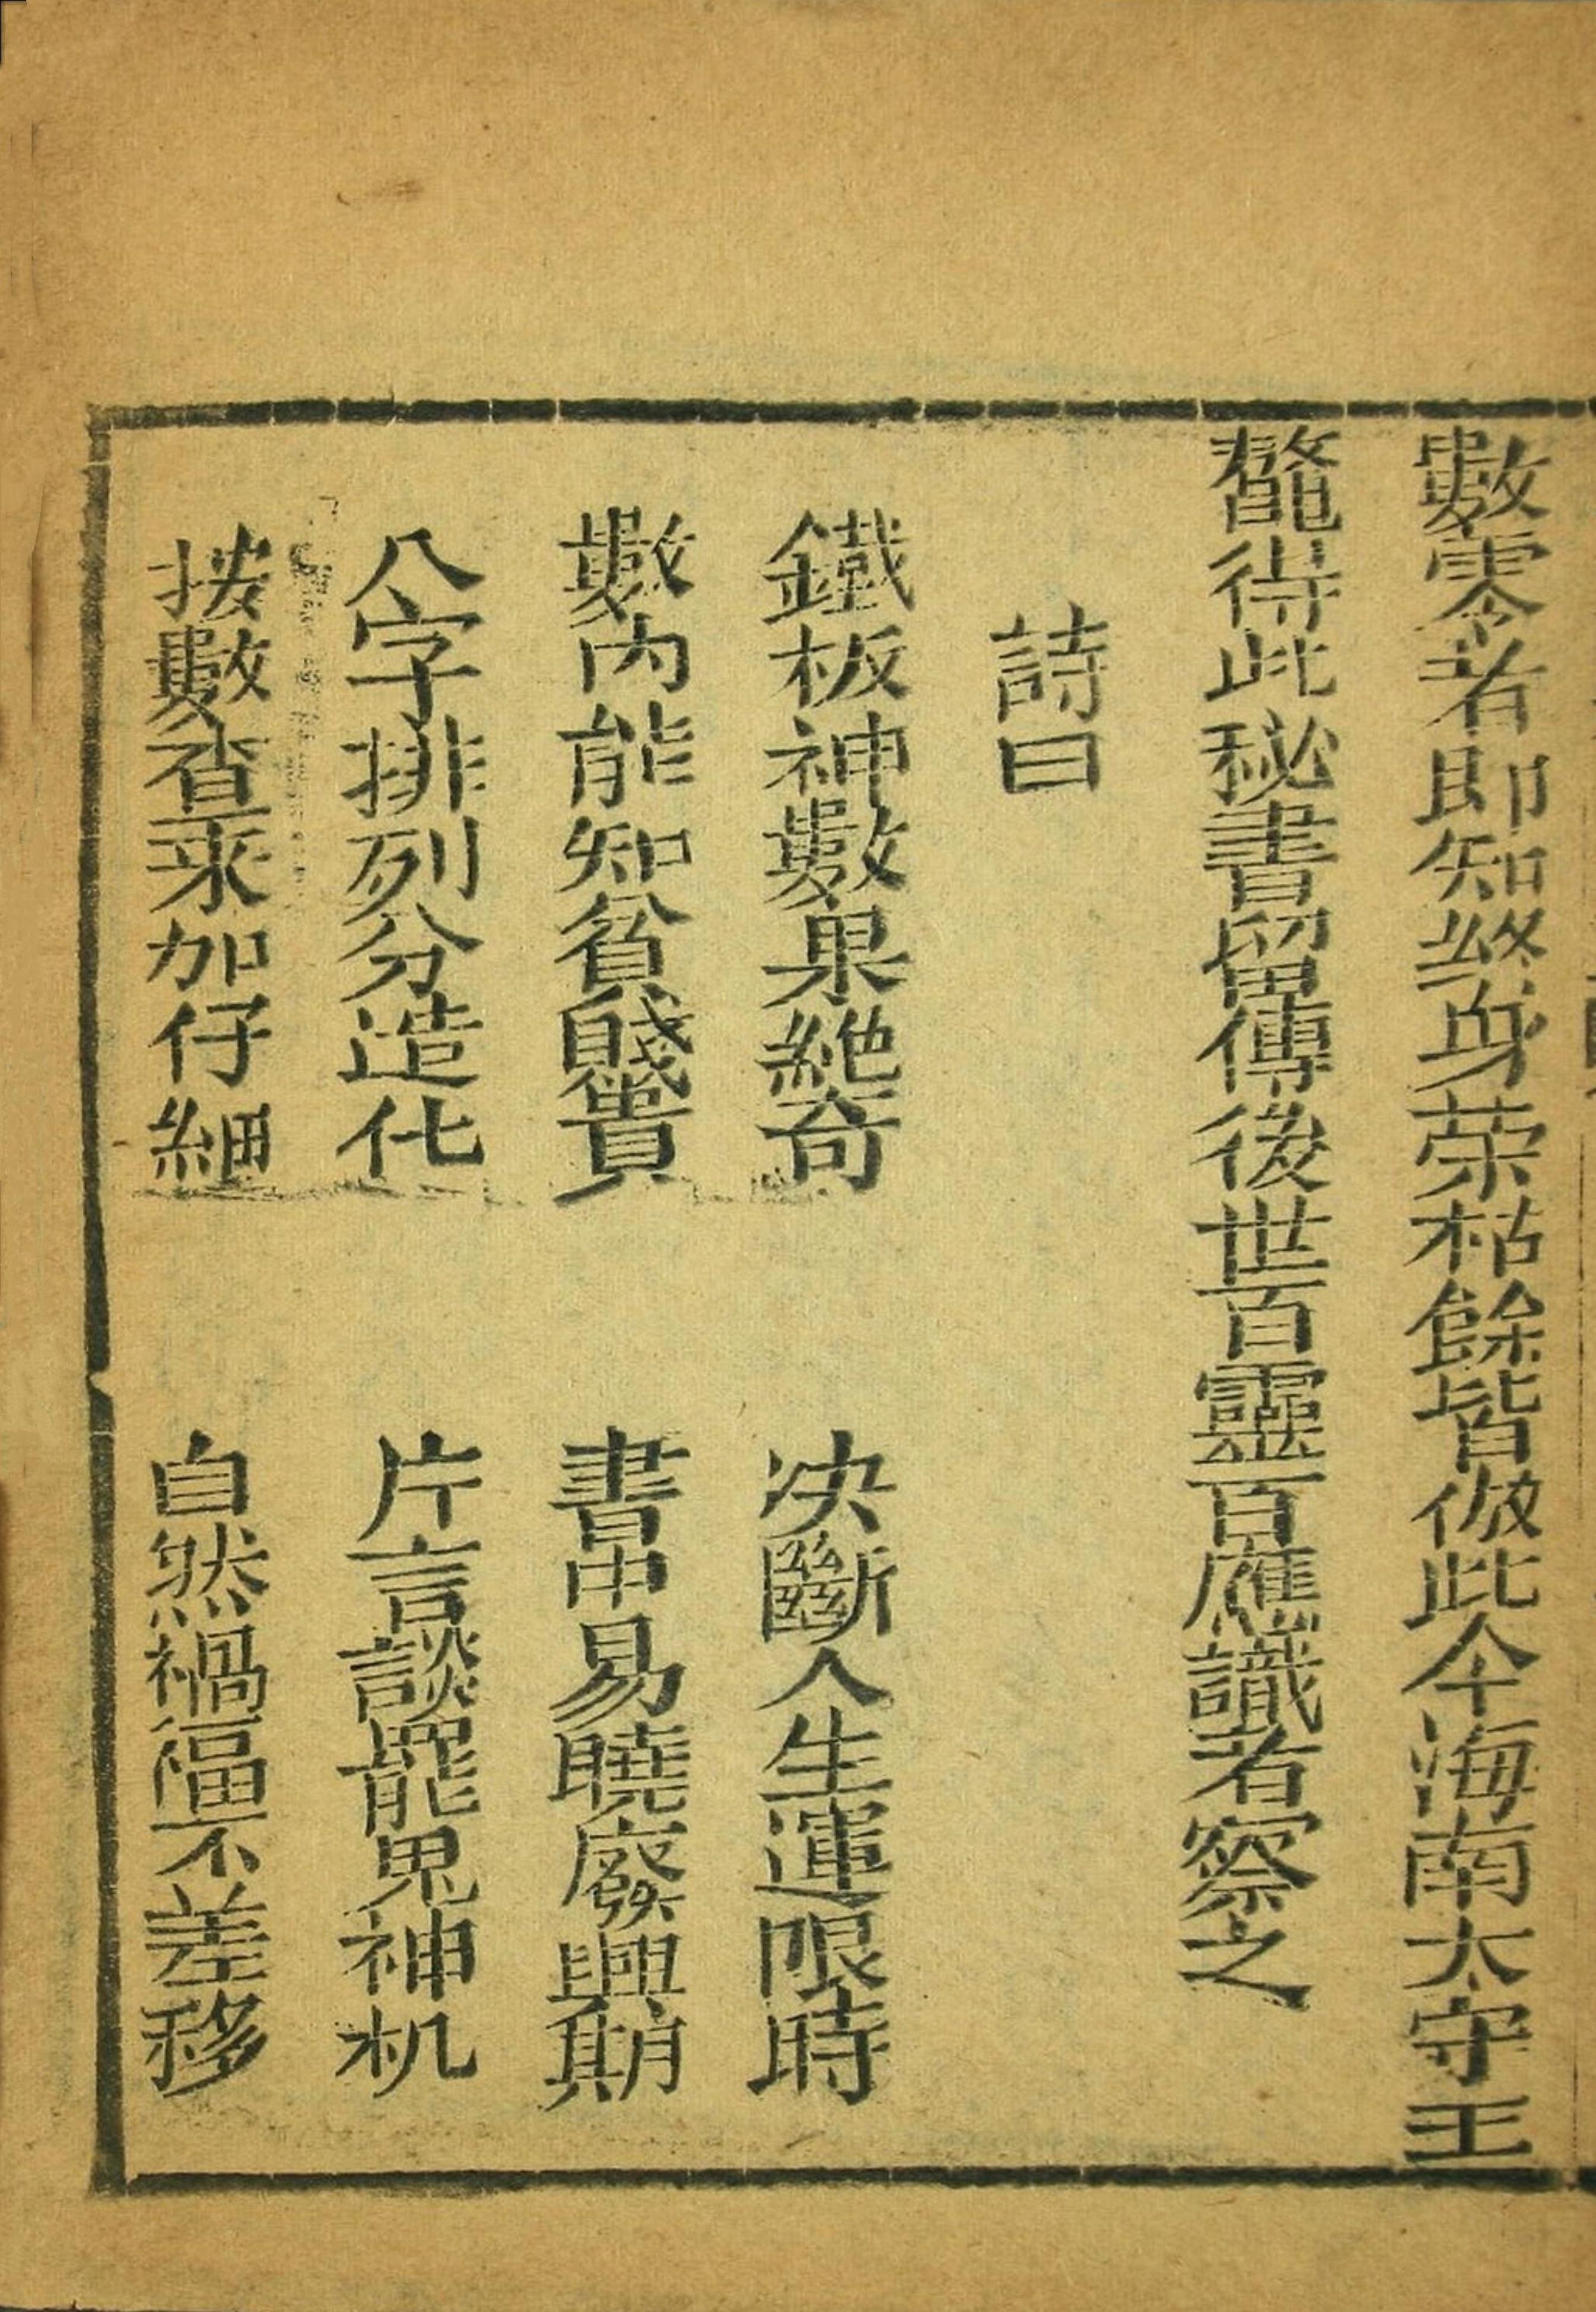 數零者即知終身荣枯餘皆倣此今海南太守王
鼇得此秘書留傳後世百靈百應識者察之
詩曰
鐵板神數果絕奇　决斷人生運限時
數內能知貧賤貴　書中易曉廢興期
八字排列分造化　片言談罷鬼神机
按數查来加仔細　自然禍福不差移